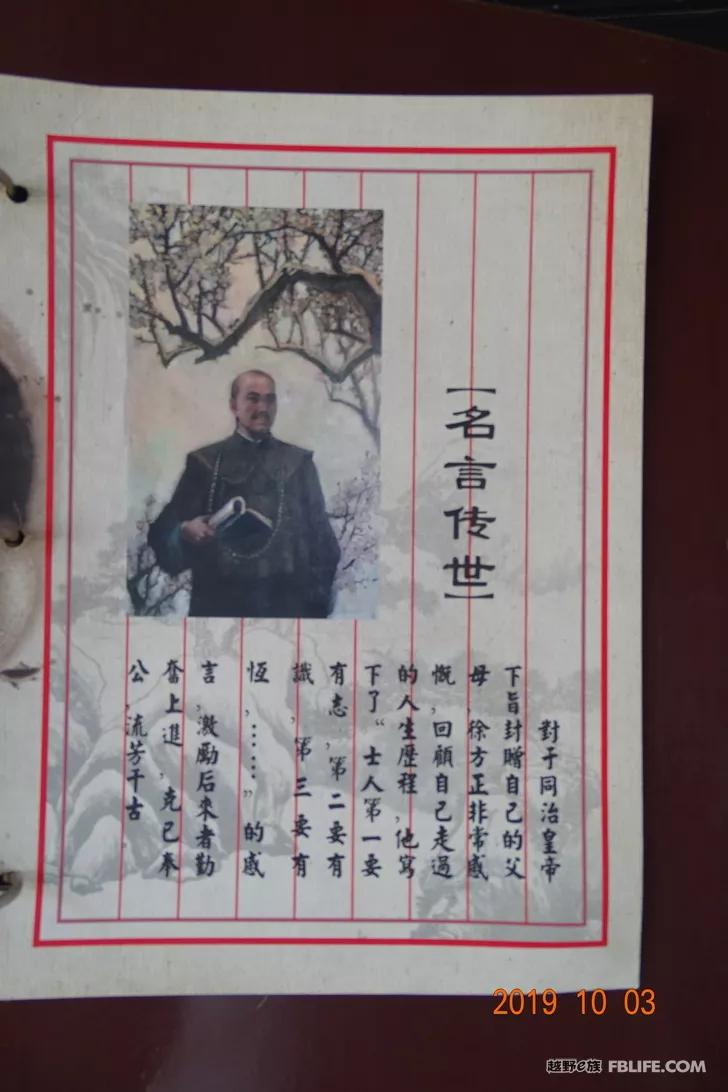 【名言传世】
對于同治皇帝
下旨封贈自己的父
母，徐方正非常感
慨，回顧自己走過
的人生歷程，他寫
下了“士人第一要
有志，第二要有
識，第三要有
恆，……”的感
言，激勵后來者勤
奮上進，克已奉
公，流芳千古
2019 10 03
越野e族 FBLIFE.COM